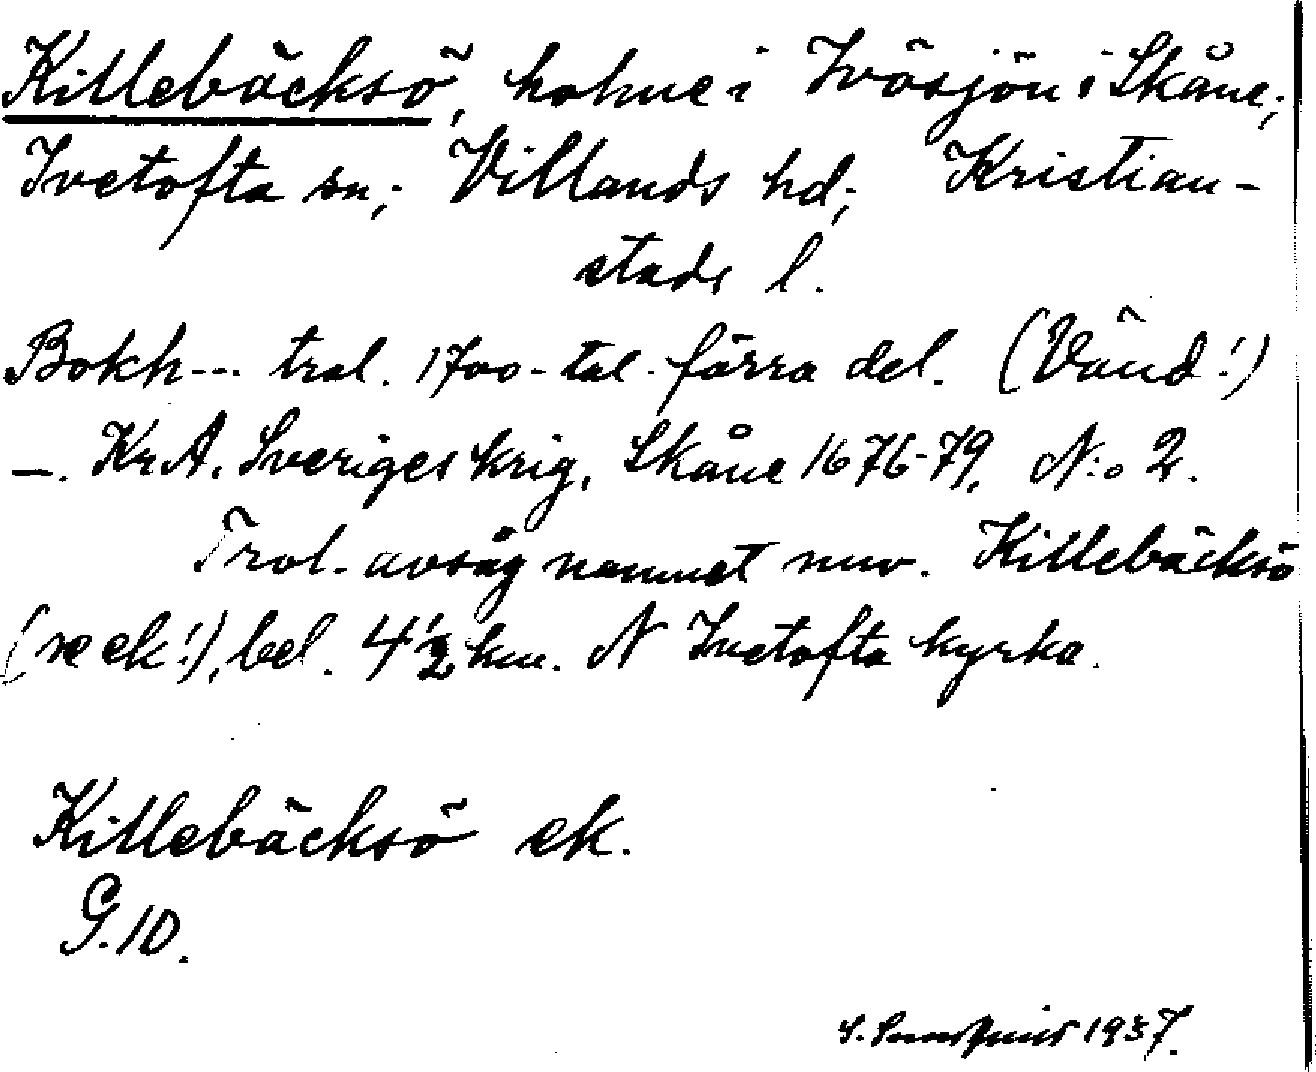 Killebäcksö, holme i Ivösjön i Skåne;
Ivetofta sn; Villands hd; Kristian-
stads l.
Bokh--- trol. 1700-tal. förra del. (Vänd!)
—. Kr.A. Sveriges krig, Skåne 1676-79, N:o 2.
Trol. avsåg namnet nuv. Killebäcksö
(se ek!), bel. 4 1/2 km. N Ivetofta kyrka.
Killebäcksö ek.
G.10.
1937.